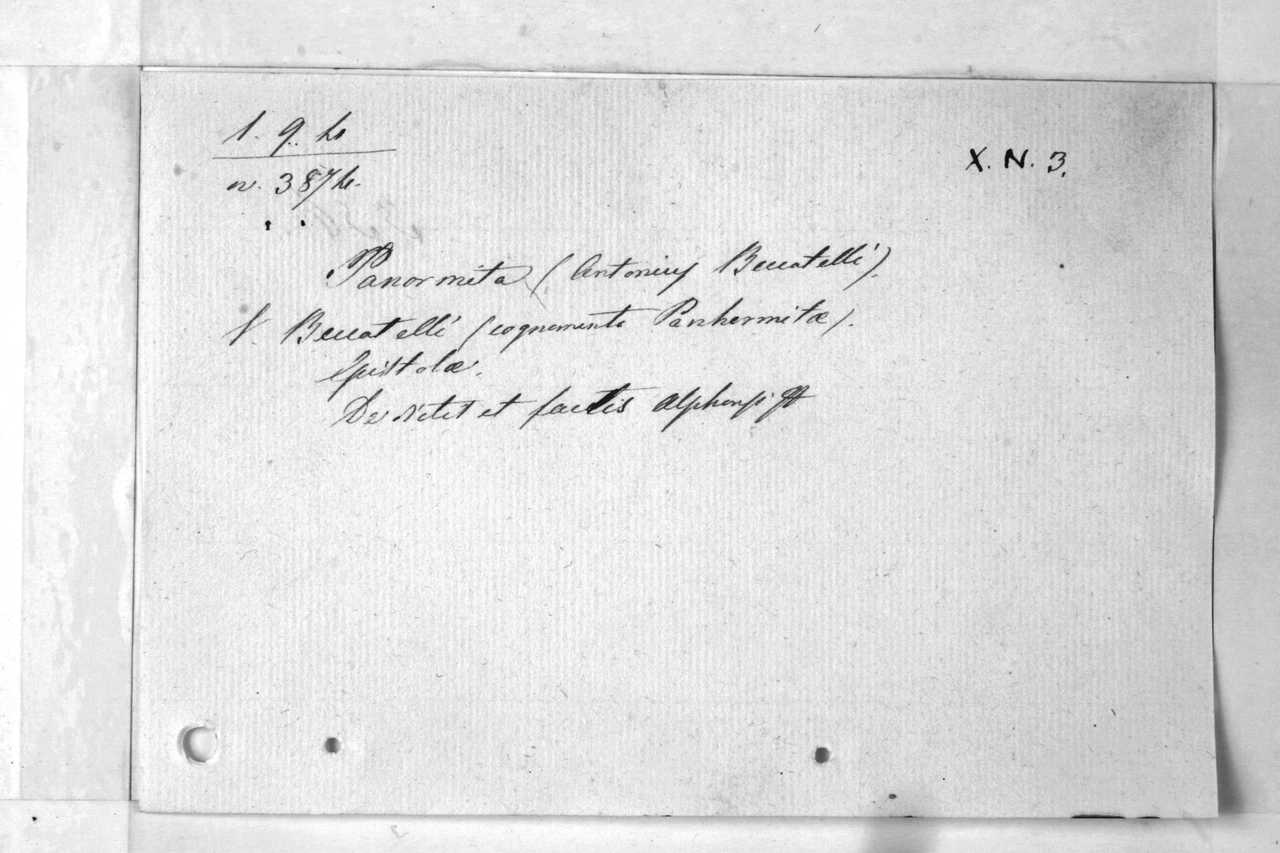 1. 9. h
n. 387 h.
X. N. 3.
Panormita (Antonius Beccatelli).
V. Beccatelli (cognomento Panhormitæ).
Epistolæ.
De dictis et factis Alphonsi